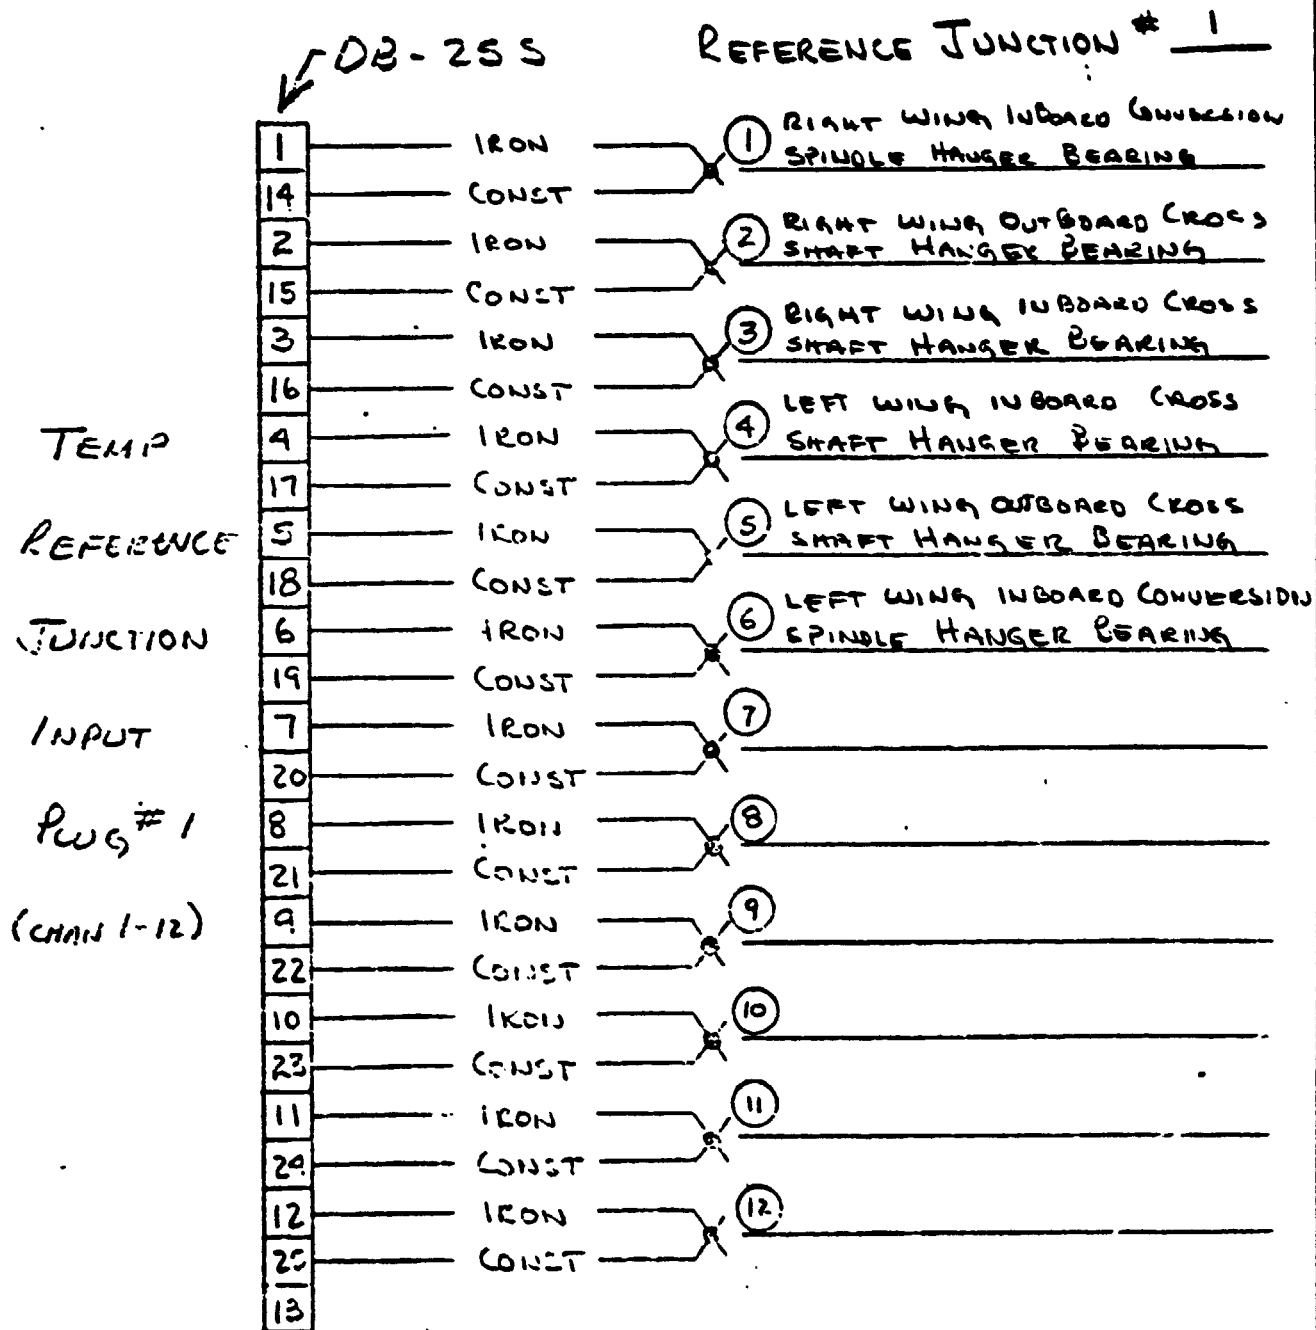 DB-25S
REFERENCE JUNCTION # 1
TEMP
REFERENCE
JUNCTION
INPUT
PLUG # 1
(CHAN 1-12)
1 IRON 1 RIGHT WING INBOARD CONVERSION
SPINDLE HANGER BEARING
14 CONST
2 IRON 2 RIGHT WING OUTBOARD CROSS
SHAFT HANGER BEARING
15 CONST
3 IRON 3 RIGHT WING INBOARD CROSS
SHAFT HANGER BEARING
16 CONST
4 IRON 4 LEFT WING INBOARD CROSS
SHAFT HANGER BEARING
17 CONST
5 IRON 5 LEFT WING OUTBOARD CROSS
SHAFT HANGER BEARING
18 CONST
6 IRON 6 LEFT WING INBOARD CONVERSION
SPINDLE HANGER BEARING
19 CONST
7 IRON 7
20 CONST
8 IRON 8
21 CONST
9 IRON 9
22 CONST
10 IRON 10
23 CONST
11 IRON 11
24 CONST
12 IRON 12
25 CONST
13